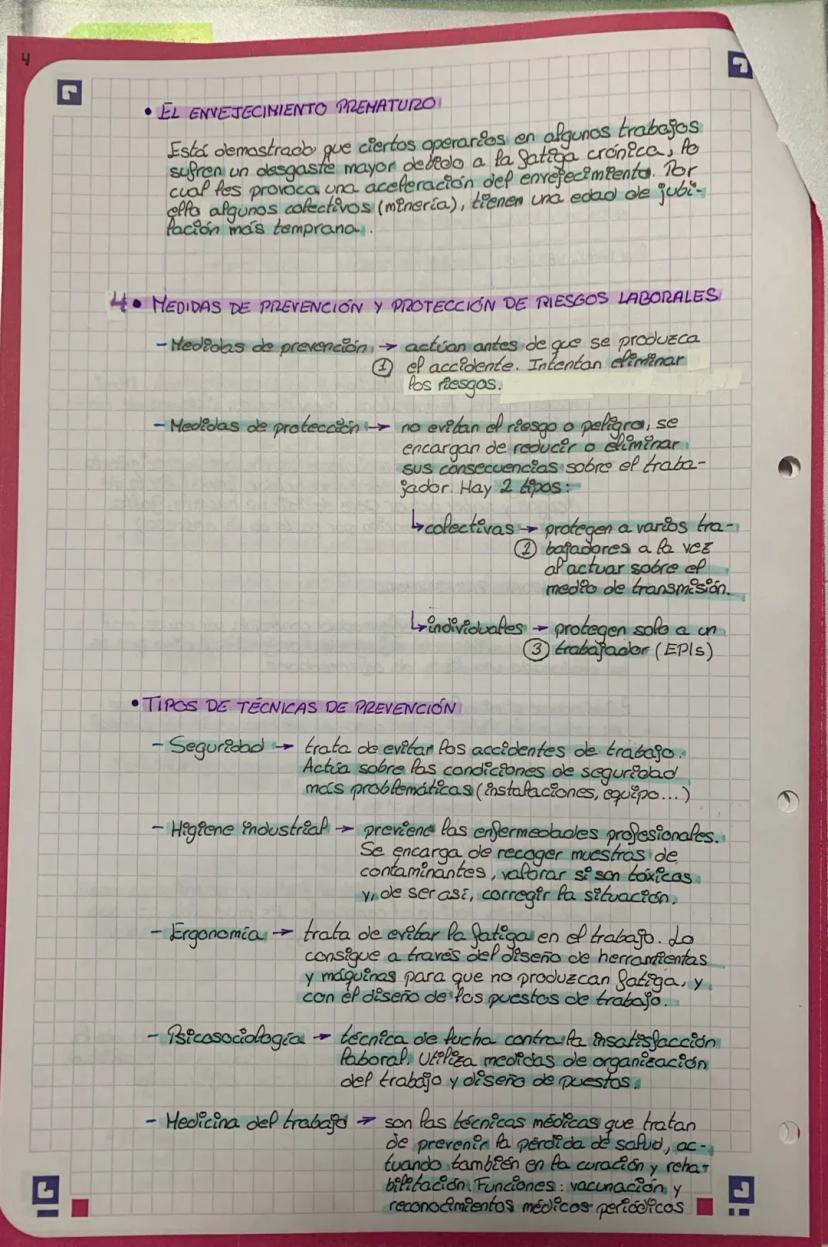 4
• EL ENVEJECIMIENTO PREMATURO
Está demostrado que ciertos operarios en algunos trabajos
sufren un desgaste mayor debido a la fatiga crónica, lo
cual les provoca una aceleración del envejecimiento. Por
ello algunos colectivos (minería), tienen una edad de jubi-
lación más temprana.
4• MEDIDAS DE PREVENCIÓN Y PROTECCIÓN DE RIESGOS LABORALES
- Medidas de prevención → actúan antes de que se produzca
① el accidente. Intentan eliminar
los riesgos.
- Medidas de protección → no evitan el riesgo o peligro, se
encargan de reducir o eliminar
sus consecuencias sobre el traba-
jador. Hay 2 tipos:
↳ colectivas → protegen a varios tra-
② bajadores a la vez
al actuar sobre el
medio de transmisión.
↳ individuales → protegen solo a un
③ trabajador (EPIs)
• TIPOS DE TÉCNICAS DE PREVENCIÓN
- Seguridad → trata de evitar los accidentes de trabajo.
Actúa sobre las condiciones de seguridad
más problemáticas (instalaciones, equipo...)
- Higiene industrial → previene las enfermedades profesionales.
Se encarga de recoger muestras de
contaminantes, valorar si son tóxicas
y, de ser así, corregir la situación.
- Ergonomía → trata de evitar la fatiga en el trabajo. Lo
consigue a través del diseño de herramientas
y máquinas para que no produzcan fatiga, y
con el diseño de los puestos de trabajo.
- Psicosociología → técnica de lucha contra la insatisfacción
laboral. Utiliza medidas de organización
del trabajo y diseño de puestos.
- Medicina del trabajo → son las técnicas médicas que tratan
de prevenir la pérdida de salud, ac-
tuando también en la curación y reha-
bilitación. Funciones: vacunación y
reconocimientos médicos periódicos